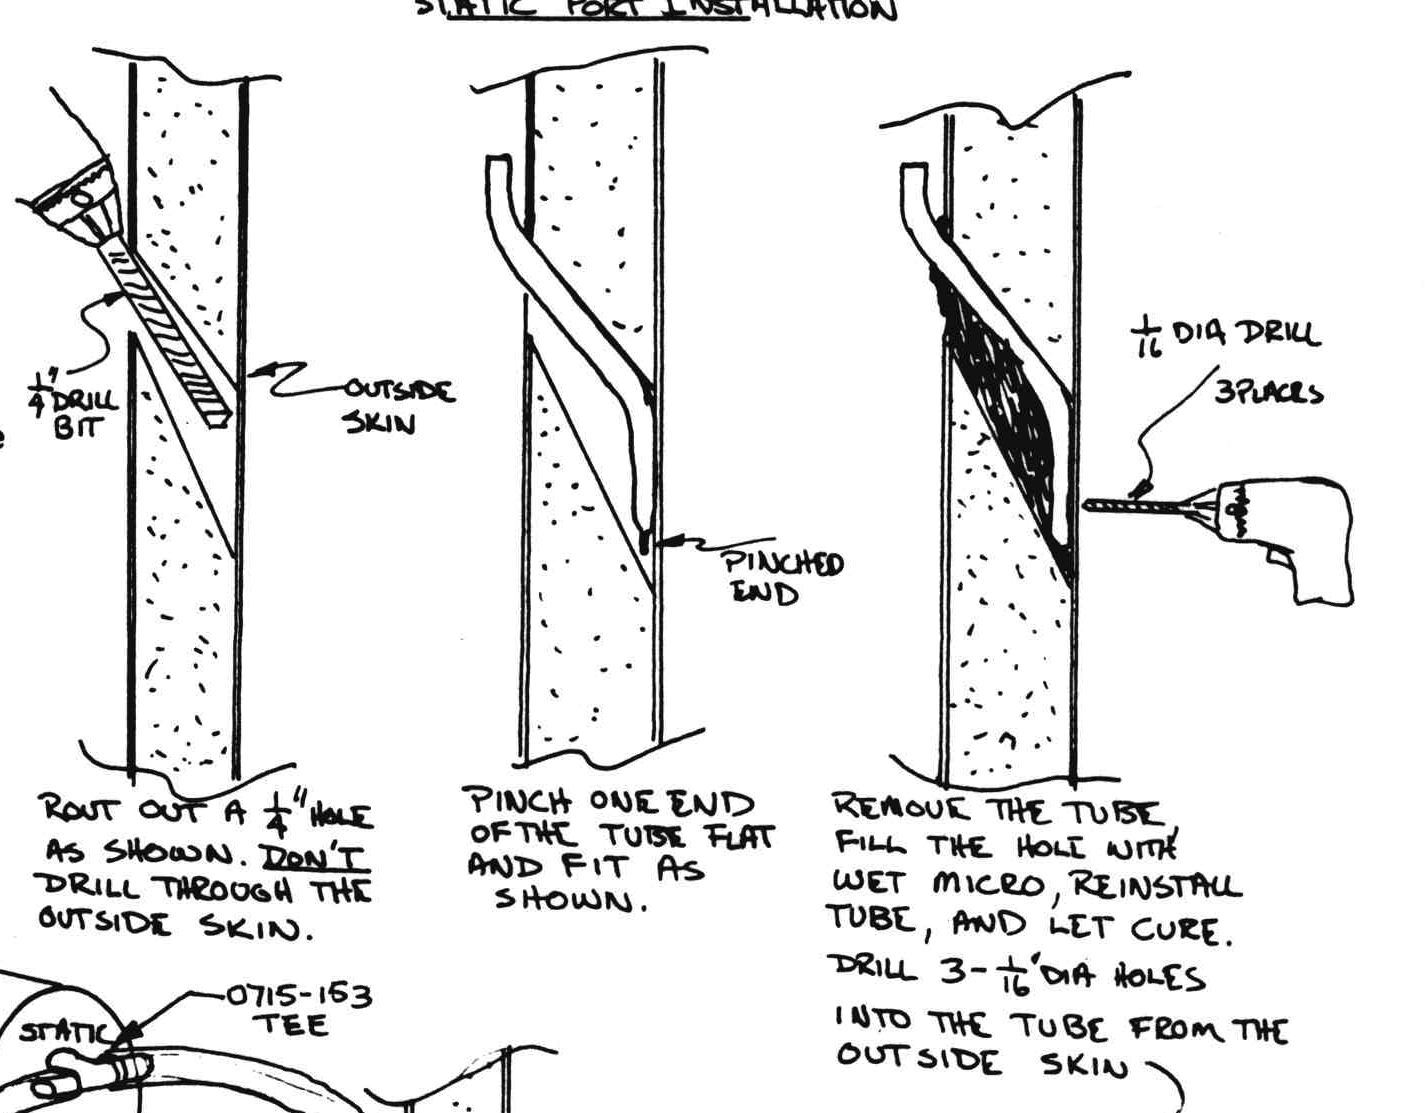 STATIC PORT INSTALLATION
1/4" DRILL
BIT
OUTSIDE
SKIN
PINCHED
END
1/16 DIA DRILL
3 PLACES
ROUT OUT A 1/4" HOLE
AS SHOWN. DON'T
DRILL THROUGH THE
OUTSIDE SKIN.
PINCH ONE END
OF THE TUBE FLAT
AND FIT AS
SHOWN.
REMOVE THE TUBE
FILL THE HOLE WITH
WET MICRO, REINSTALL
TUBE, AND LET CURE.
DRILL 3-1/16" DIA HOLES
INTO THE TUBE FROM THE
OUTSIDE SKIN
0715-153
TEE
STATIC